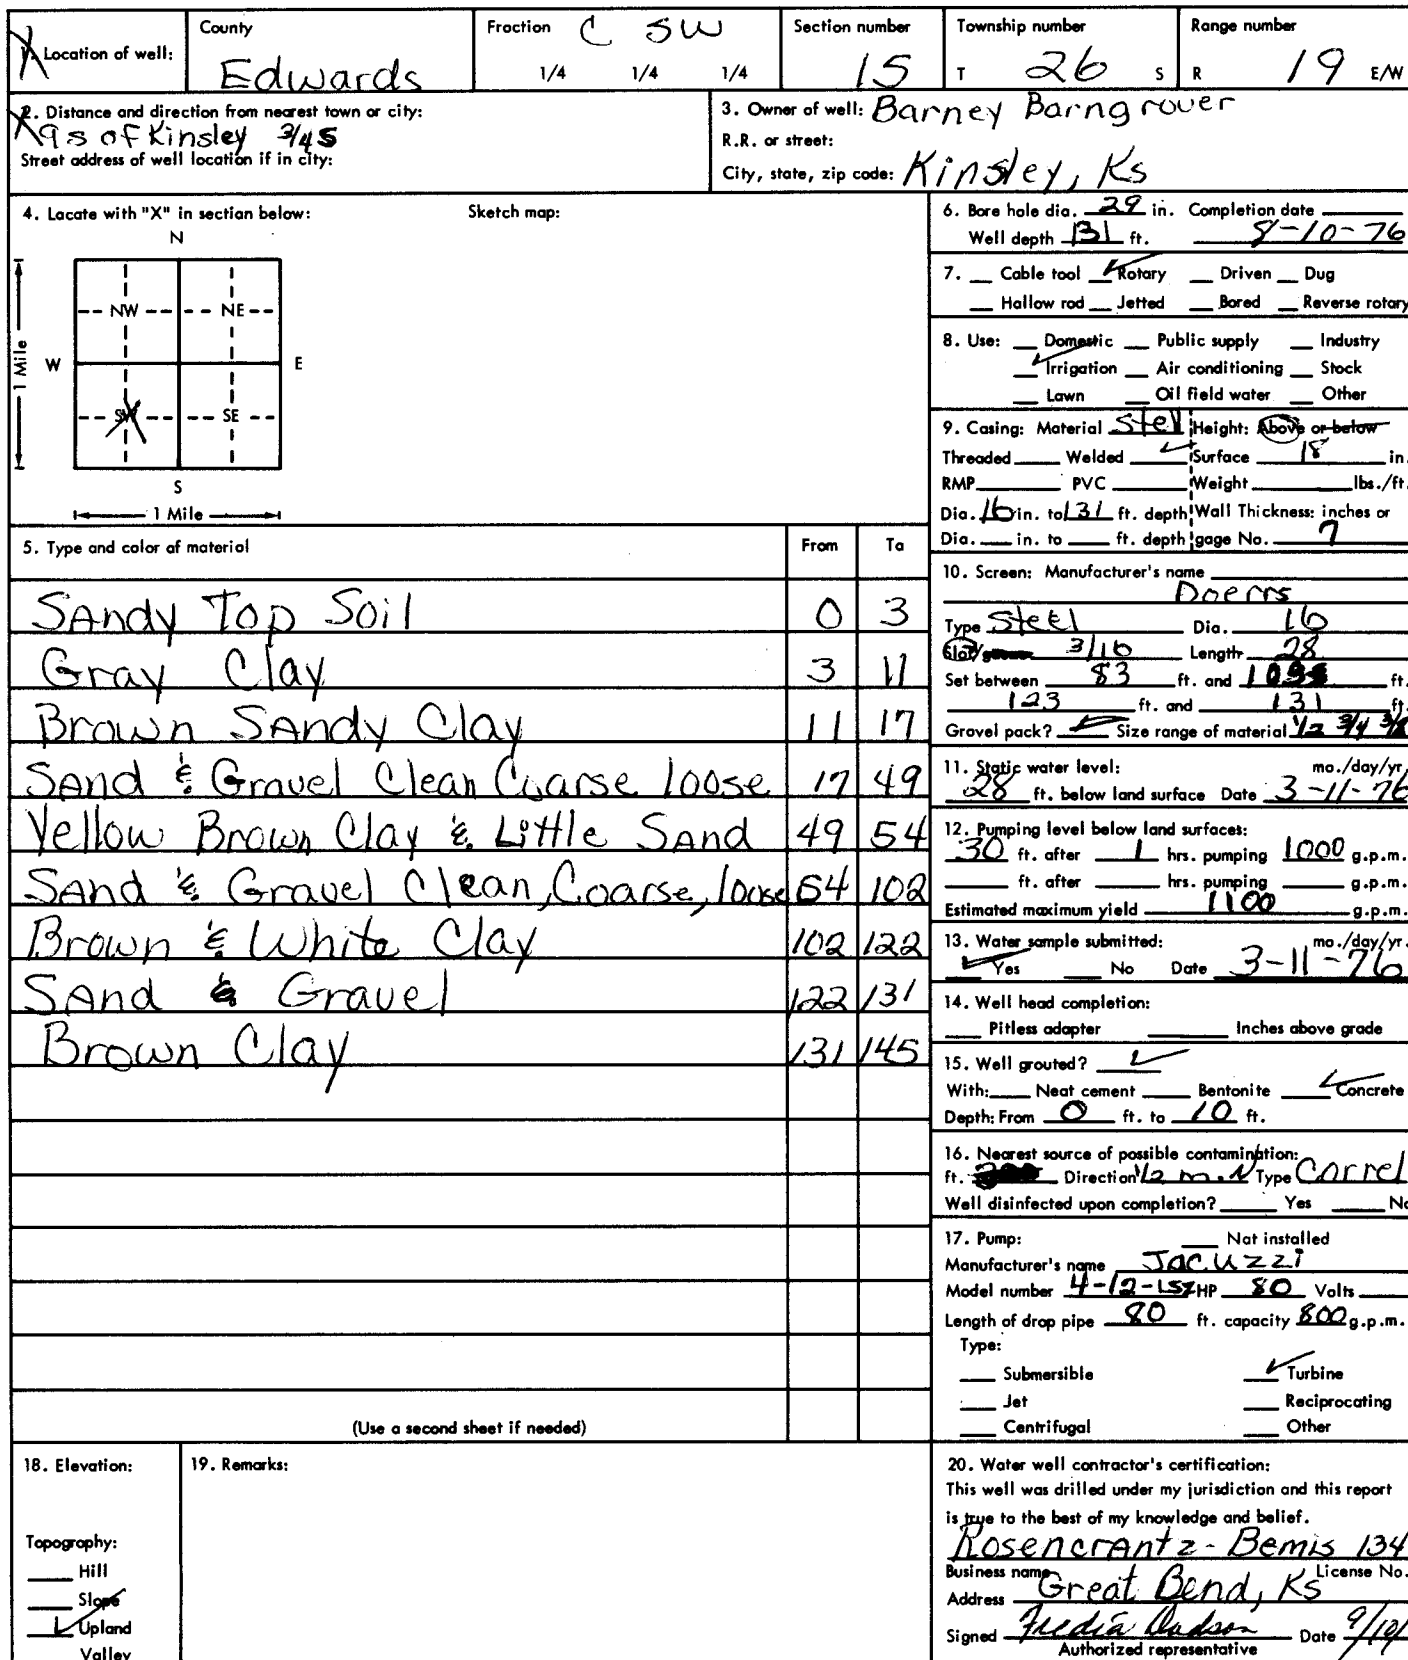 1. Location of well: County Edwards Fraction C SW 1/4 1/4 1/4 Section number 15 Township number T 26 S Range number R 19 E/W
2. Distance and direction from nearest town or city:
9 s of Kinsley 3/4 S
Street address of well location if in city:
3. Owner of well: Barney Barngrover
R.R. or street:
City, state, zip code: Kinsley, Ks
4. Locate with "X" in section below: Sketch map:
N
NW NE
W E
1 Mile
SW SE
S
1 Mile
5. Type and color of material From To
Sandy Top Soil 0 3
Gray Clay 3 11
Brown Sandy Clay 11 17
Sand & Gravel Clean Coarse loose 17 49
Yellow Brown Clay & Little Sand 49 54
Sand & Gravel Clean, Coarse, loose 54 102
Brown & White Clay 102 122
Sand & Gravel 122 131
Brown Clay 131 145
(Use a second sheet if needed)
6. Bore hole dia. 29 in. Completion date
Well depth 131 ft. 9-10-76
7. Cable tool Rotary Driven Dug
Hallow rod Jetted Bored Reverse rotary
8. Use: Domestic Public supply Industry
Irrigation Air conditioning Stock
Lawn Oil field water Other
9. Casing: Material Stell Height: Above or below
Threaded Welded Surface 18 in.
RMP PVC Weight lbs./ft.
Dia. 16 in. to 131 ft. depth Wall Thickness: inches or
Dia. in. to ft. depth gage No. 7
10. Screen: Manufacturer's name
Doerrs
Type Steel Dia. 16
Slot 3/16 Length 28
Set between 83 ft. and ft.
123 ft. and 131 ft.
Gravel pack? Size range of material 1/2 3/4 3/8
11. Static water level: mo./day/yr.
28 ft. below land surface Date 3-11-76
12. Pumping level below land surfaces:
30 ft. after 1 hrs. pumping 1000 g.p.m.
ft. after hrs. pumping g.p.m.
Estimated maximum yield 1100 g.p.m.
13. Water sample submitted: mo./day/yr.
Yes No Date 3-11-76
14. Well head completion:
Pitless adapter Inches above grade
15. Well grouted?
With: Neat cement Bentonite Concrete
Depth: From 0 ft. to 10 ft.
16. Nearest source of possible contamination:
ft. Direction 1/2 m. N Type Correl
Well disinfected upon completion? Yes No
17. Pump: Not installed
Manufacturer's name Jacuzzi
Model number HP 80 Volts
Length of drop pipe 80 ft. capacity 800 g.p.m.
Type:
Submersible Turbine
Jet Reciprocating
Centrifugal Other
18. Elevation:
Topography:
Hill
Slope
Upland
Valley
19. Remarks:
20. Water well contractor's certification:
This well was drilled under my jurisdiction and this report
is true to the best of my knowledge and belief.
Rosencrantz-Bemis 134
Business name License No.
Address Great Bend, Ks
Signed Date 9/10/
Authorized representative